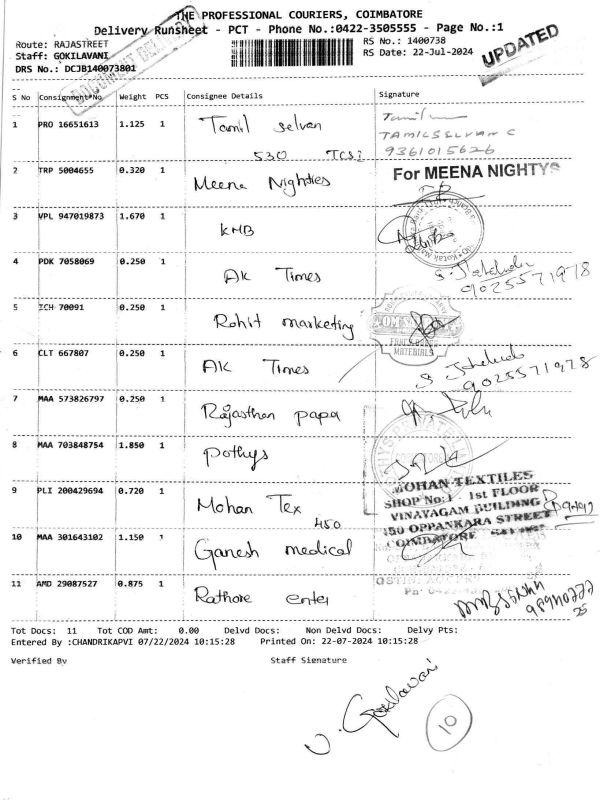 THE PROFESSIONAL COURIERS, COIMBATORE
Delivery Runsheet - PCT - Phone No.:0422-3505555 - Page No.:1
Route: RAJASTREET
RS No.: 1400738
Staff: GOKILAVANI
RS Date: 22-Jul-2024
UPDATED
DRS No.: DCJB140073801
S No Consignment No Weight PCS Consignee Details Signature
1 PRO 16651613 1.125 1 Tamil Selvan
TAMILSELVAN C
530
9361015626
2 TRP 5004655 0.320 1 Meena Nighties For MEENA NIGHTYS
3 VPL 947019873 1.670 1 KMB
4 PDK 7058069 0.250 1 AK Times
9025571978
5 ICH 70091 0.250 1 Rohit marketing
MATERIALS
6 CLT 667807 0.250 1 AK Times
9025571978
7 MAA 573826797 0.250 1 Rajasthan papa
8 MAA 703848754 1.850 1 Pothys
9 PLI 200429694 0.720 1 Mohan Tex
450
MOHAN TEXTILES
SHOP No:1 1st FLOOR
VINAYAGAM BUILDING
450 OPPANKARA STREET
COIMBATORE
10 MAA 301643102 1.150 1 Ganesh medical
11 AMD 29087527 0.875 1 Rathore enter
Tot Docs: 11 Tot COD Amt: 0.00 Delvd Docs: Non Delvd Docs: Delvy Pts:
Entered By :CHANDRIKAPVI 07/22/2024 10:15:28 Printed On: 22-07-2024 10:15:28
Verified By Staff Signature
V. Gokilavani
10